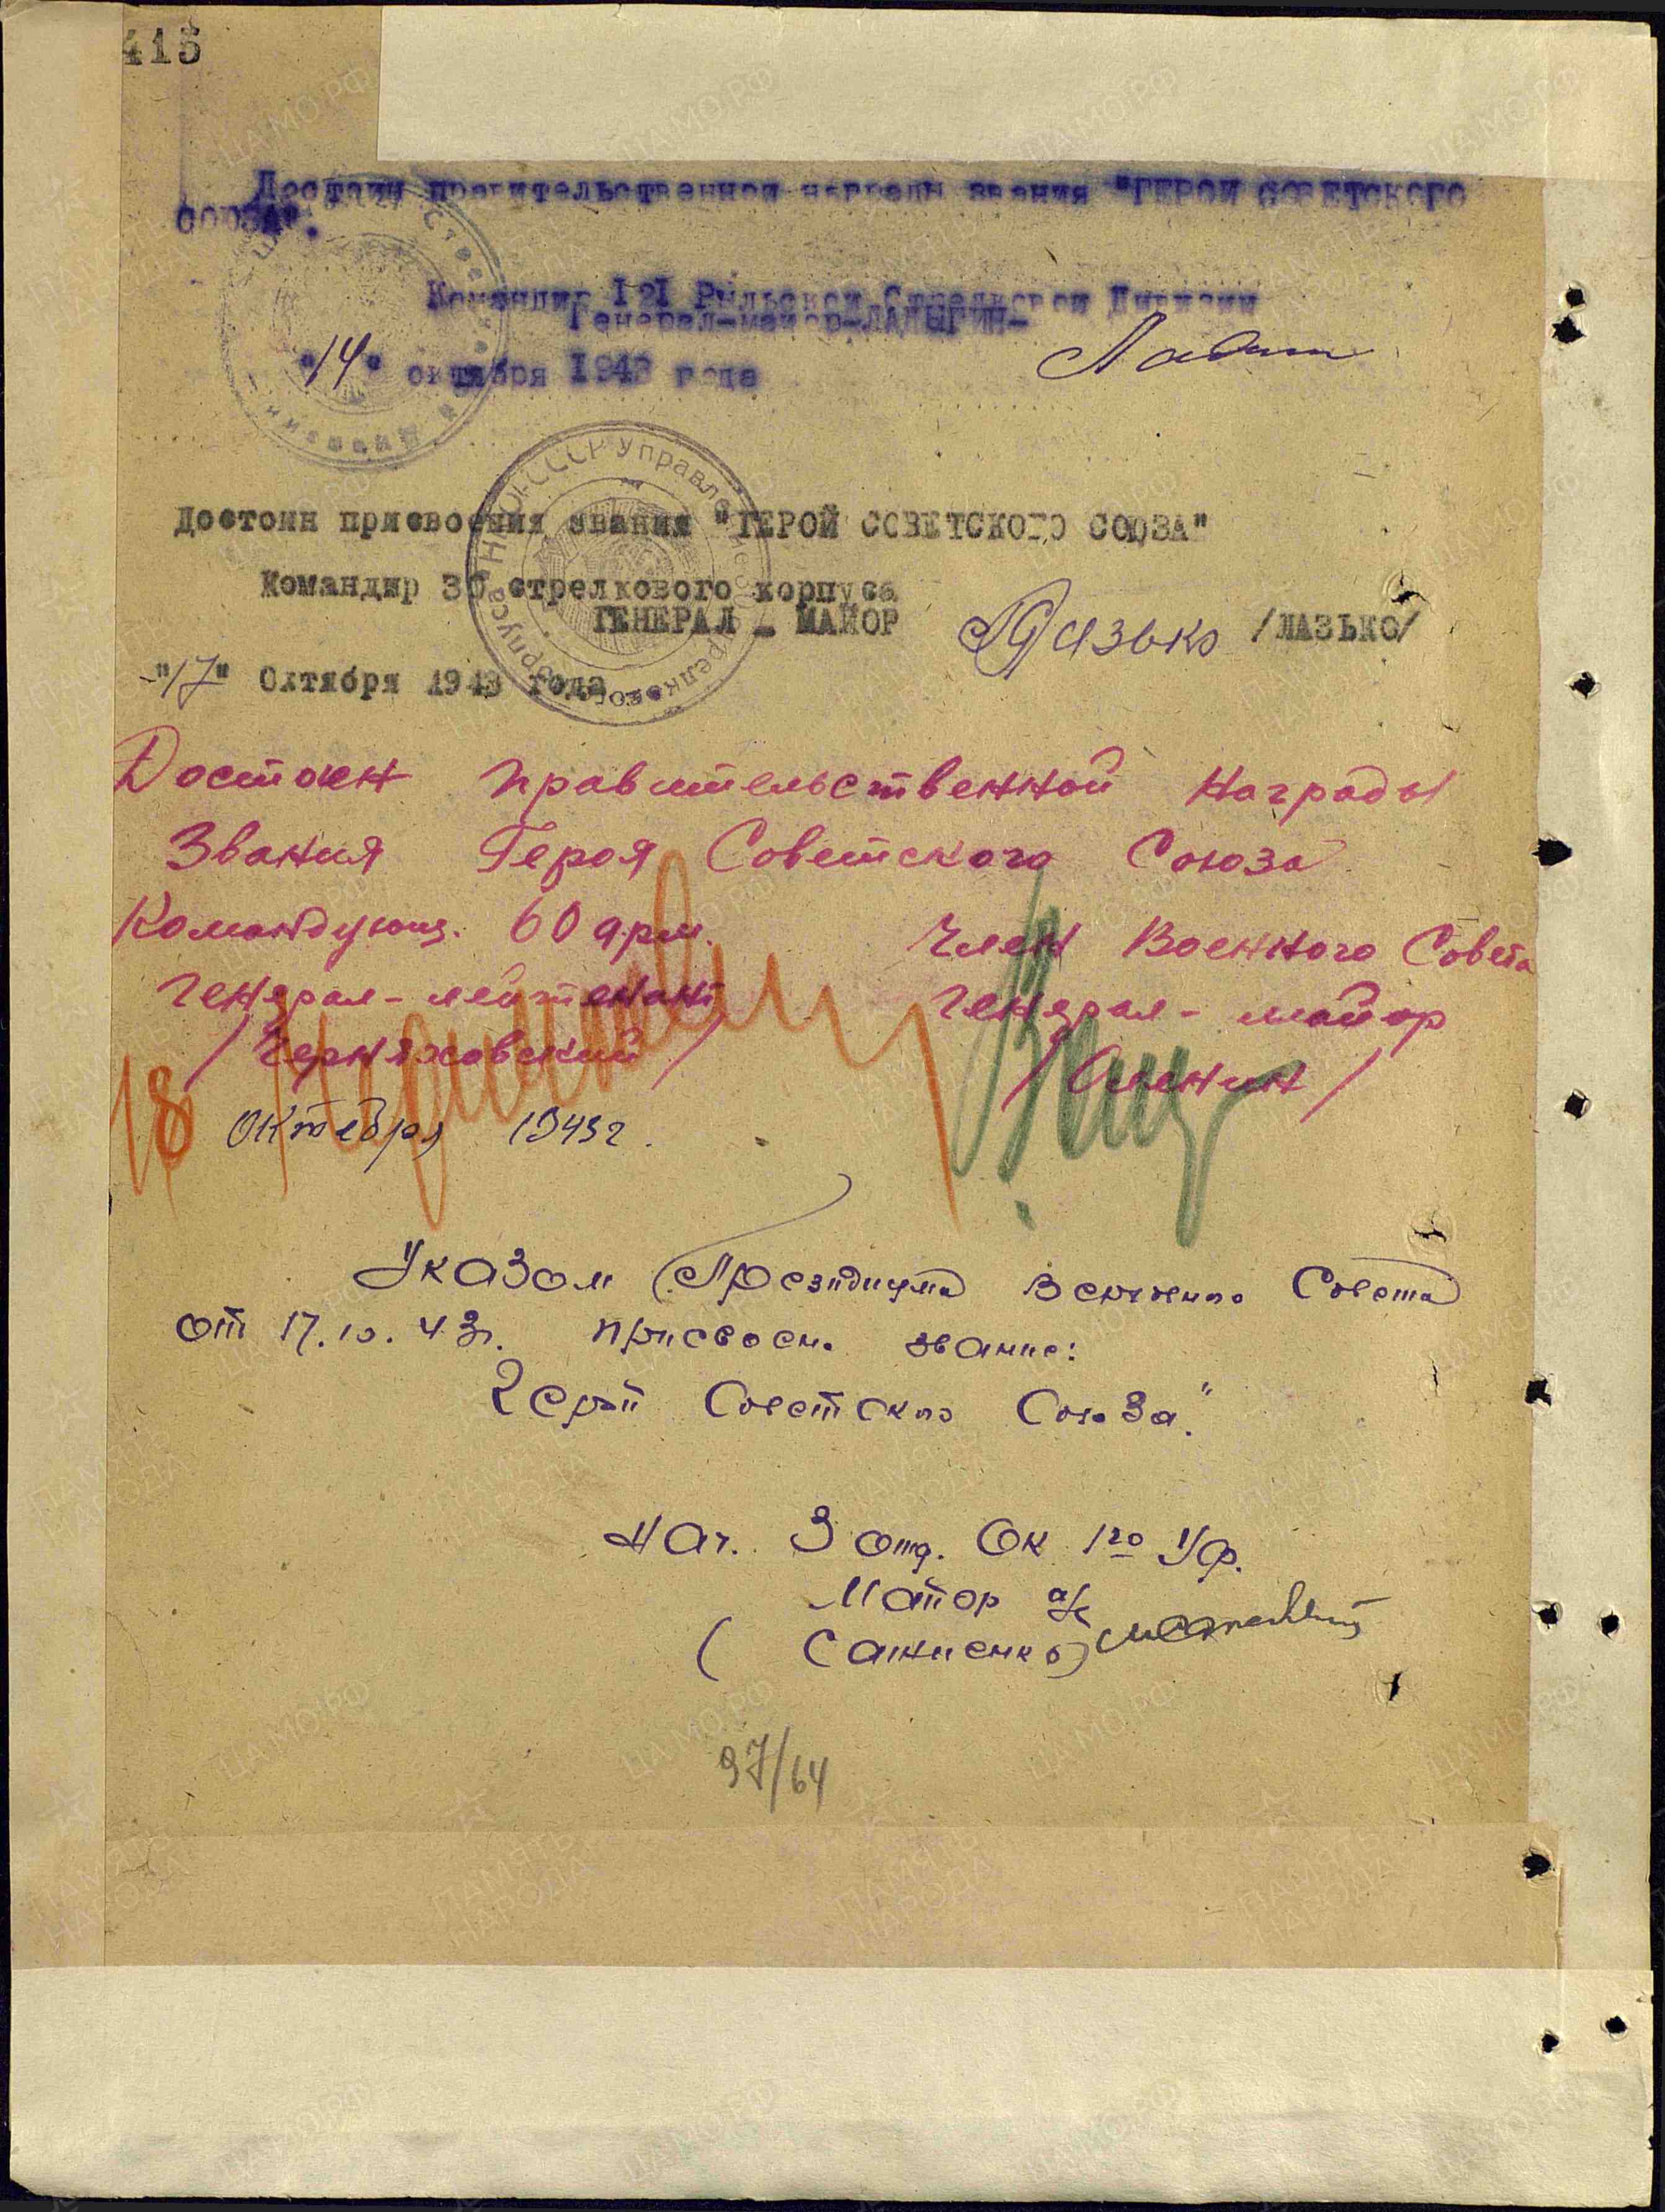 415
Достоин правительственной награды звания "ГЕРОЙ СОВЕТСКОГО
СОЮЗА".
Командир 121 Рыльской Стрелковой Дивизии
Генерал-майор-ЛАДЫГИН-
"14" октября 1943 года
Достоин присвоения звания "ГЕРОЙ СОВЕТСКОГО СОЮЗА"
Командир 30 стрелкового корпуса
ГЕНЕРАЛ - МАЙОР Лазько /ЛАЗЬКО/
"17" Октября 1943 года
Достоин правительственной награды
Звания Героя Советского Союза
Командующ. 60 арм. Член Военного Совета
Генерал-лейтенант Генерал-майор
/Черняховский/ /Оленин/
18 октября 1943г.
Указом Президиума Верховного Совета
от 17.10.43г. присвоено звание:
Герой Советского Союза".
Нач. 3 отд. ОК 1го Уф.
Майор а/с
(Санженко)
97/64
ЦАМО.РФ
ПАМЯТЬ
НАРОДА